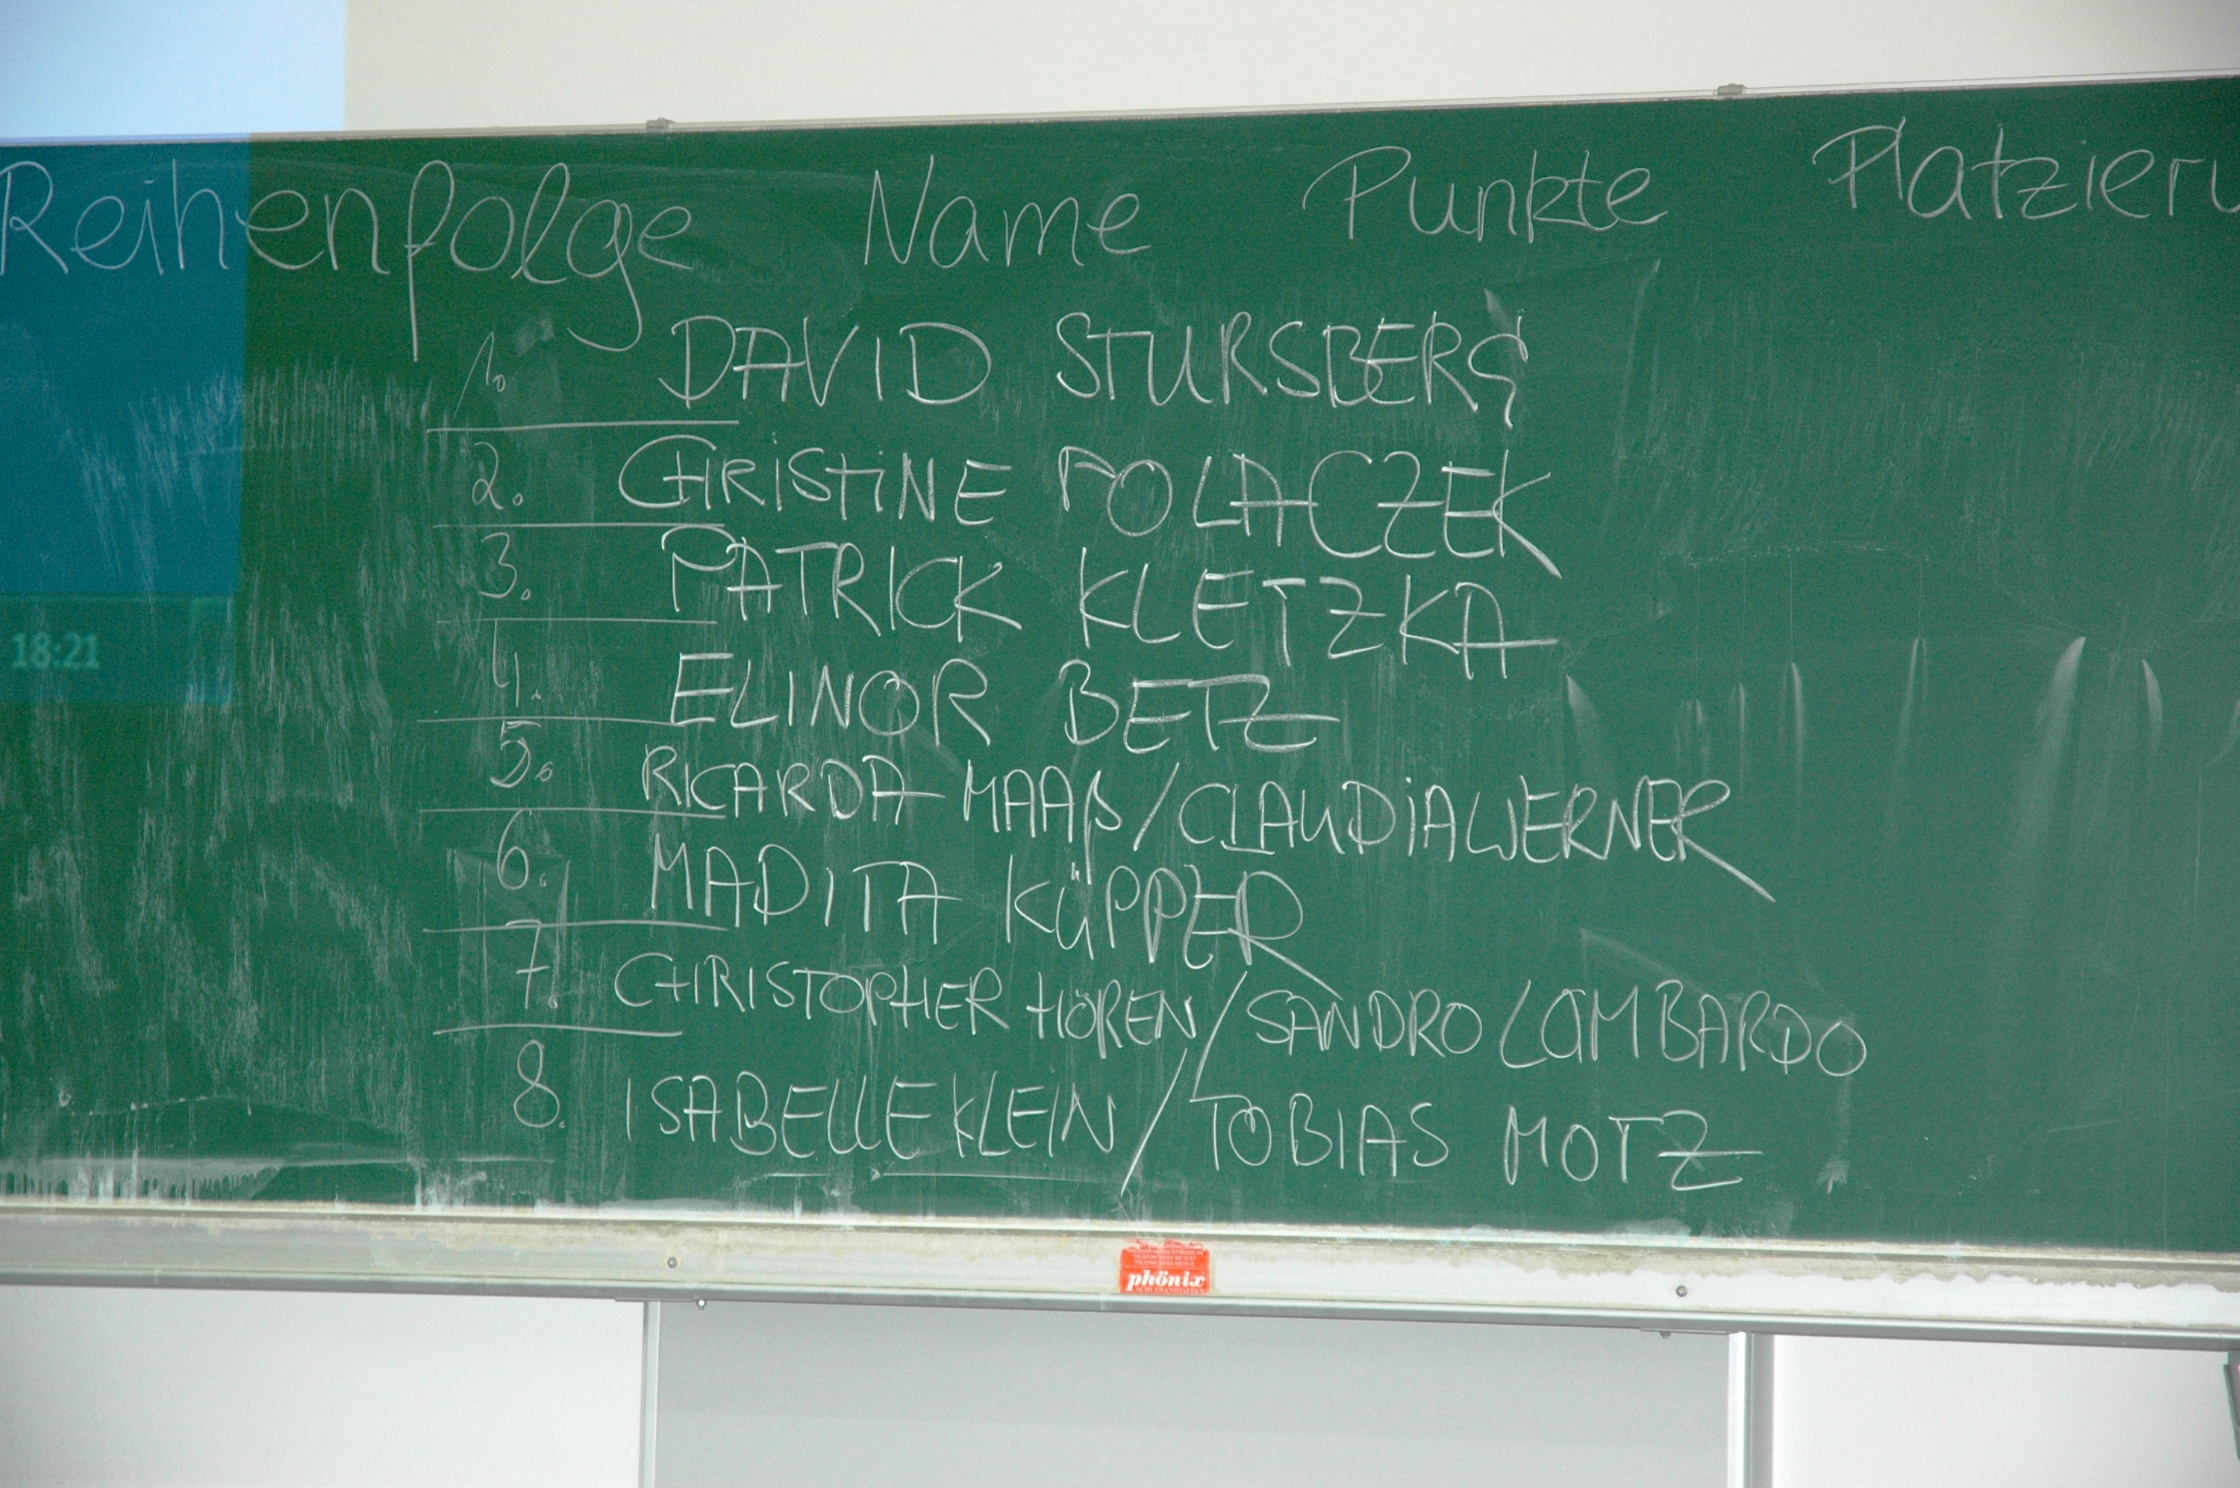 Reihenfolge Name Punkte Platzieru
1. DAVID STURSBERG
2. CHRISTINE POLACZEK
3. PATRICK KLETZKA
4. ELINOR BETZ
5. RICARDA MAAß / CLAUDIA WERNER
6. MADITA KÜPPER
18:21
7. CHRISTOPHER HÖREN / SANDRO LOMBARDO
8. ISABELLE KLEIN / TOBIAS MOTZ
phönix